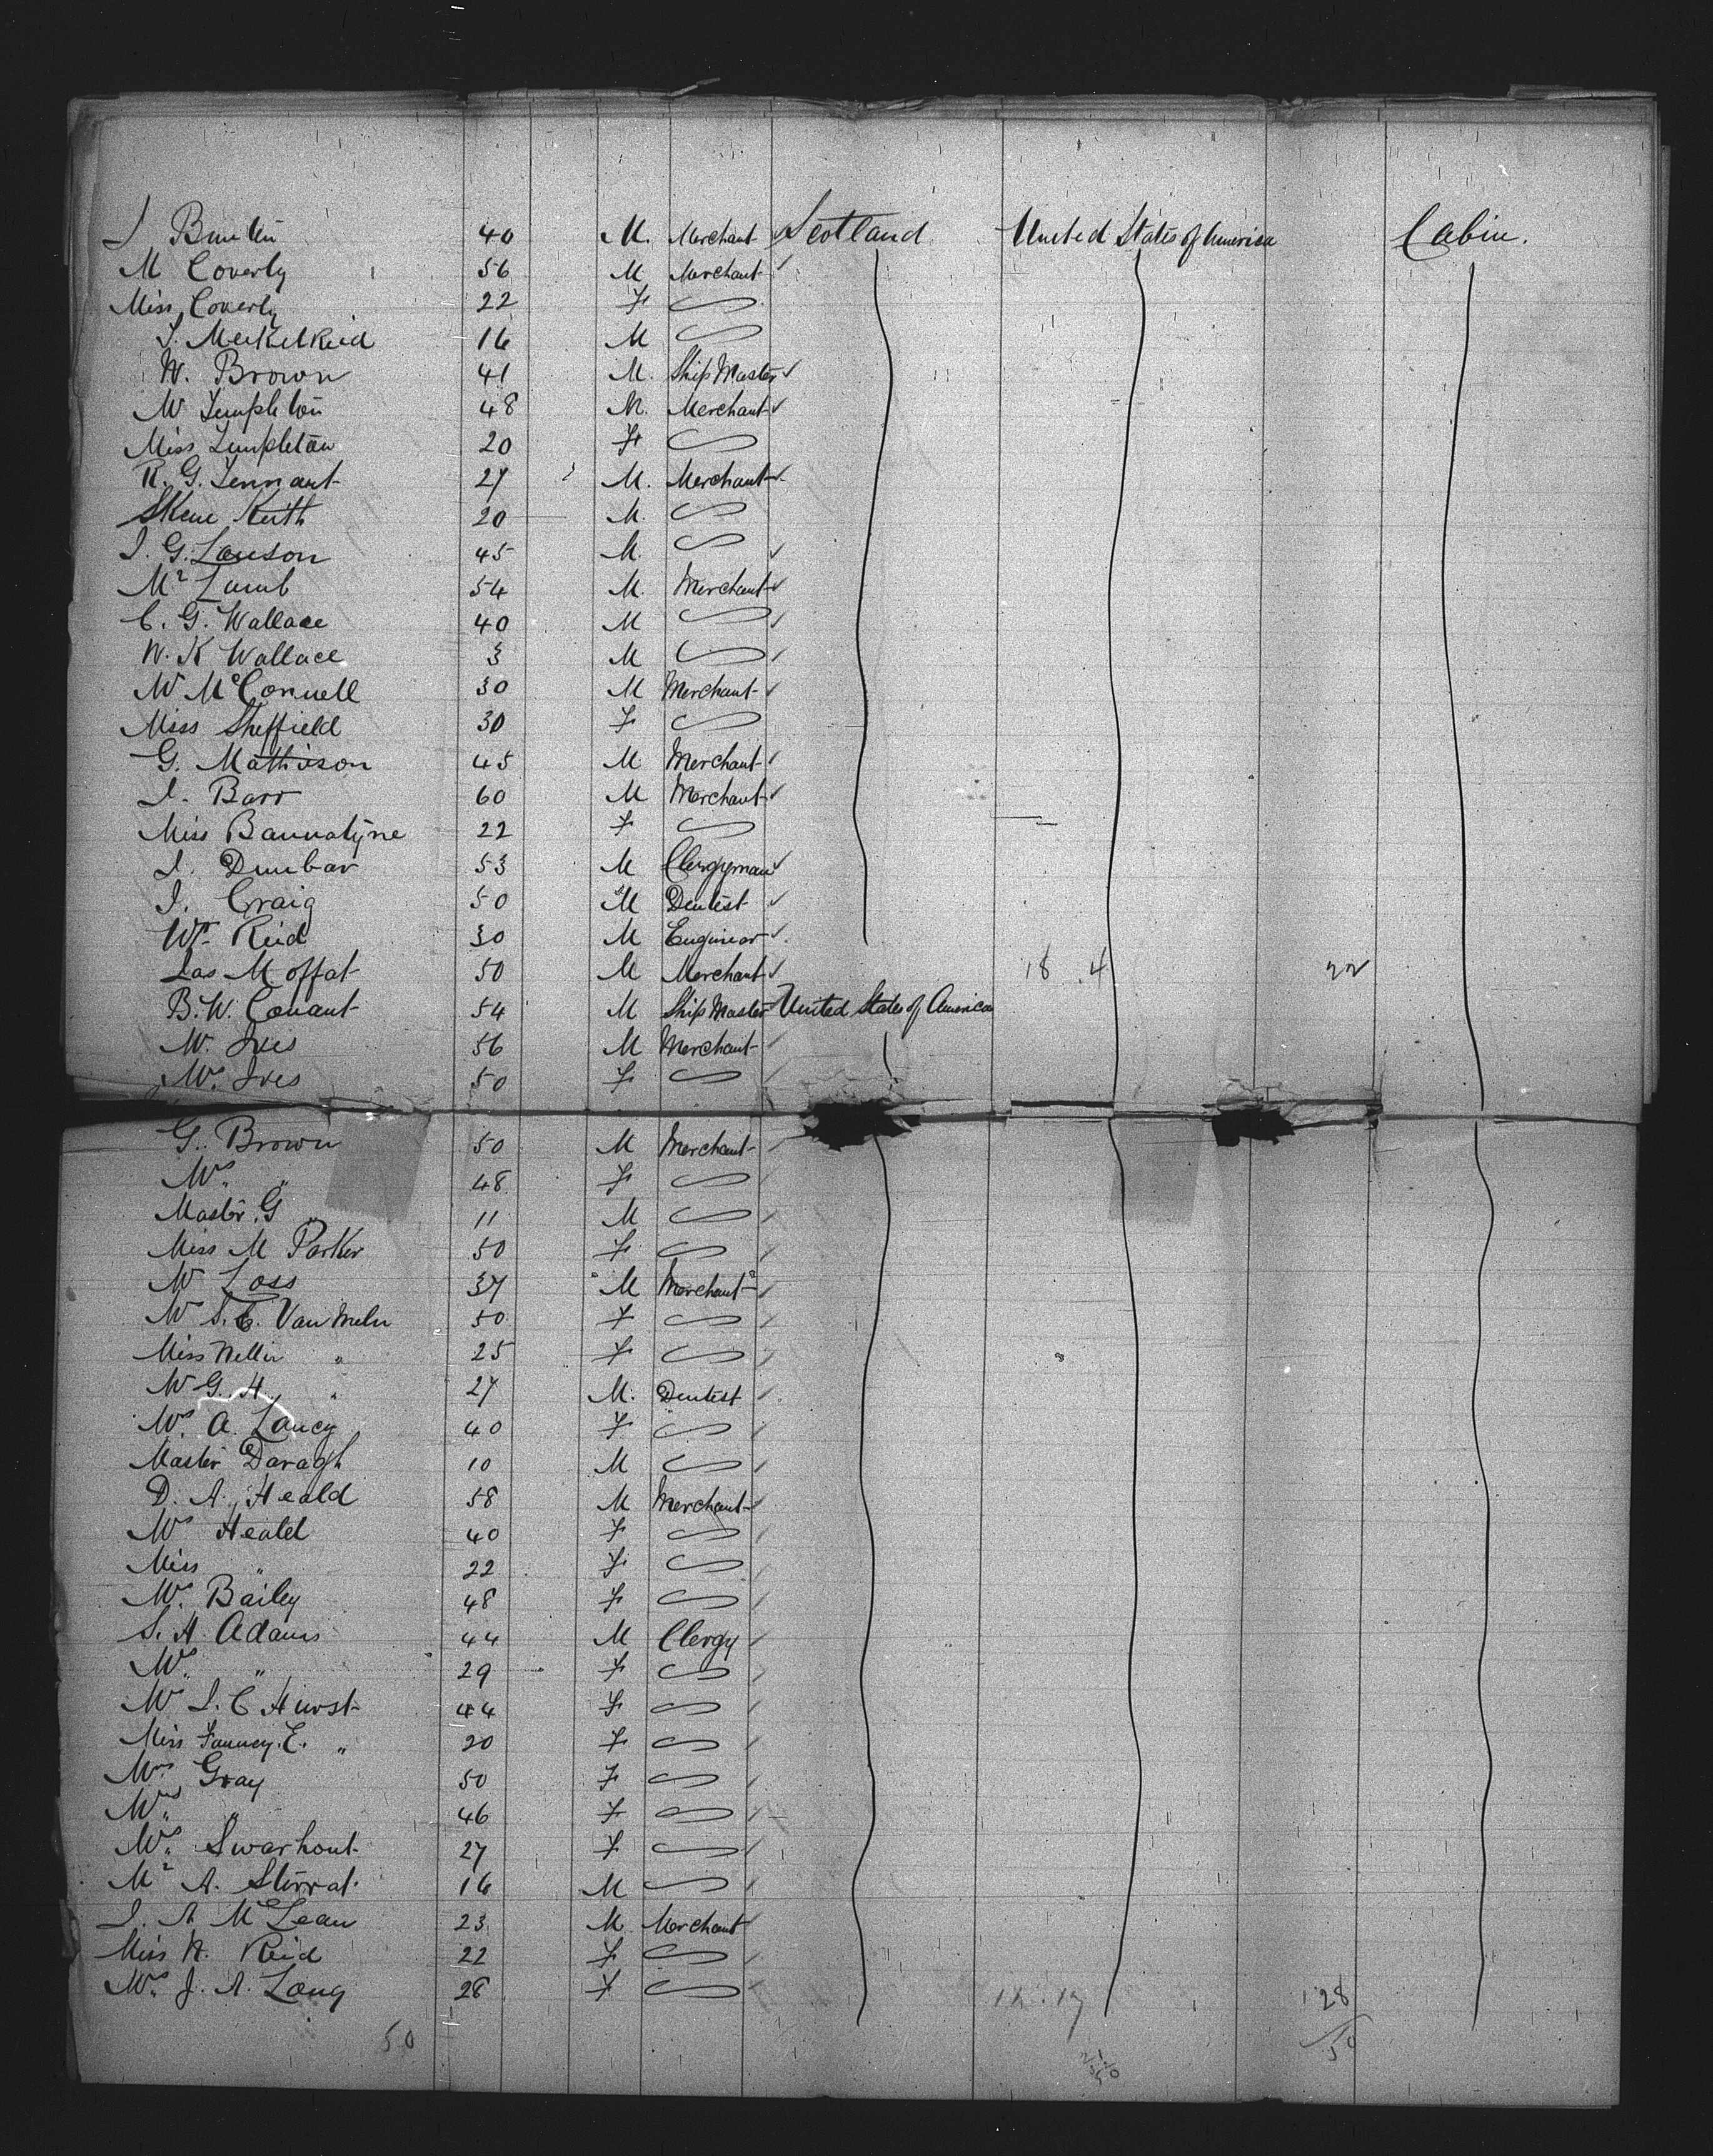 J Bunten 40 M. Merchant Scotland United States of America Cabin.
M Coverly 56 M Merchant
Miss Coverly 22 F
J. 16 M
W. Brown 41 M. Ship Master
Mr Templeton 48 M. Merchant
Miss Templeton 20 F
R. G. Tennant 27 M. Merchant
Skene Keith 20 M.
J. G. Lawson 45 M.
Mr Lamb 54 M. Merchant
C. G. Wallace 40 M
W. K Wallace 3 M
Mr McConnell 30 M Merchant
Miss Sheffield 30 F
G. Mathieson 45 M Merchant
J. Barr 60 M Merchant
Miss Bannatyne 22 F
J. Dunbar 53 M Clergyman
J. Craig 50 M Dentist
Wm Reid 30 M Engineer
Jas Moffat 50 M Merchant 18 . 4 22
B. W. Conant 54 M Ship Master United States of America
W. Ives 56 M Merchant
Mrs. Ives 50 F
G. Brown 50 M Merchant
Mrs. " 48 F
Master. G " 11 M
Miss M Parker 50 F
Mr Loss 37 M Merchant
Mrs S. C. Van 50 F
Miss Nellie " 25 F
Mr G. H. " 27 M. Dentist
Mrs. A. Lancy 40 F
Master Daragh 10 M
D. A. Heald 58 M Merchant
Mrs Heald 40 F
Miss " 22 F
Mrs. Bailey 48 F
S. H Adams 44 M Clergy
Mrs. " 29 F
Mrs J. C Hurst 44 F
Miss Fanney. E. " 20 F
Mrs Gray 50 F
Mrs " 46 F
Mrs. Swarhout 27 F
Mr A. Stirrat 16 M
J. A McLean 23 M Merchant
Miss N. Reid 22 F
Mrs. J. A. Long 28 F 28
50 21 50 50